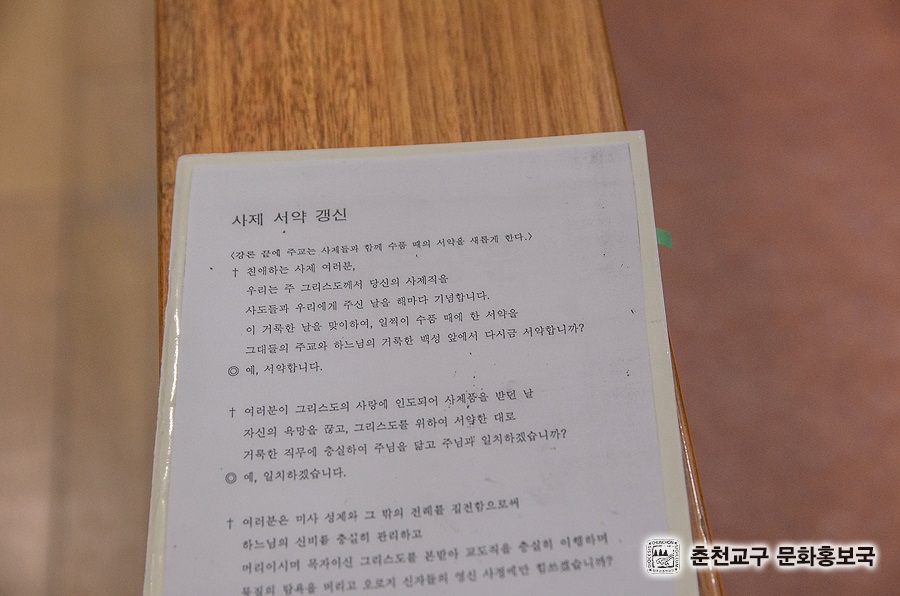 사제 서약 갱신
<강론 끝에 주교는 사제들과 함께 수품 때의 서약을 새롭게 한다.>
† 친애하는 사제 여러분,
우리는 주 그리스도께서 당신의 사제직을
사도들과 우리에게 주신 날을 해마다 기념합니다.
이 거룩한 날을 맞이하여, 일찍이 수품 때에 한 서약을
그대들의 주교와 하느님의 거룩한 백성 앞에서 다시금 서약합니까?
◎ 예, 서약합니다.
† 여러분이 그리스도의 사랑에 인도되어 사제품을 받던 날
자신의 욕망을 끊고, 그리스도를 위하여 서약한 대로
거룩한 직무에 충실하여 주님을 닮고 주님과 일치하겠습니까?
◎ 예, 일치하겠습니다.
† 여러분은 미사 성제와 그 밖의 전례를 집전함으로써
하느님의 신비를 충실히 관리하고
머리이시며 목자이신 그리스도를 본받아 교도직을 충실히 이행하며
물질의 탐욕을 버리고 오로지 신자들의 영신 사정에만 힘쓰겠습니까?
춘천교구 문화홍보국